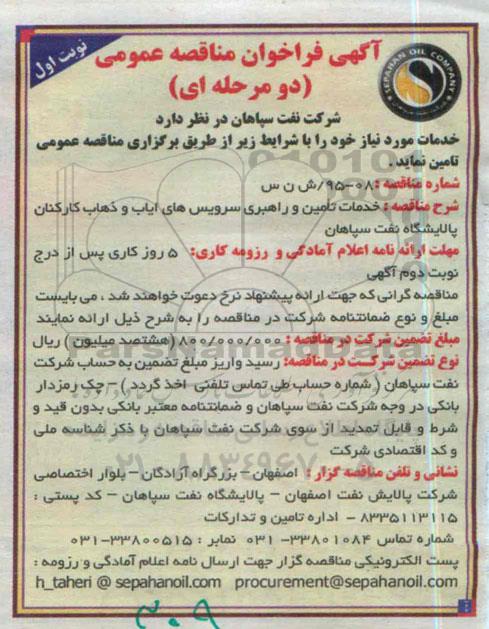 نوبت اول
آگهی فراخوان مناقصه عمومی
(دو مرحله ای)
SEPAHAN OIL COMPANY
شرکت نفت سپاهان در نظر دارد
خدمات مورد نیاز خود را با شرایط زیر از طریق برگزاری مناقصه عمومی
تامین نماید .
شماره مناقصه : ۰۸-۹۵/ش ن س
شرح مناقصه : خدمات تأمین و راهبری سرویس های ایاب و ذهاب کارکنان
پالایشگاه نفت سپاهان
مهلت ارائه نامه اعلام آمادگی و رزومه کاری: ۵ روز کاری پس از درج
نوبت دوم آگهی
مناقصه گرانی که جهت ارائه پیشنهاد نرخ دعوت خواهند شد ، می بایست
مبلغ و نوع ضمانتنامه شرکت در مناقصه را به شرح ذیل ارائه نمایند
مبلغ تضمین شرکت در مناقصه : ۸۰۰/۰۰۰/۰۰۰ (هشتصد میلیون) ریال
نوع تضمین شرکت در مناقصه: رسید واریز مبلغ تضمین به حساب شرکت
نفت سپاهان ( شماره حساب طی تماس تلفنی اخذ گردد ) – چک رمزدار
بانکی در وجه شرکت نفت سپاهان و ضمانتنامه معتبر بانکی بدون قید و
شرط و قابل تمدید از سوی شرکت نفت سپاهان با ذکر شناسه ملی
و کد اقتصادی شرکت
نشانی و تلفن مناقصه گزار : اصفهان – بزرگراه آزادگان – بلوار اختصاصی
شرکت پالایش نفت اصفهان – پالایشگاه نفت سپاهان – کد پستی :
۸۳۳۵۱۱۳۱۱۵ – اداره تامین و تدارکات
شماره تماس ۳۳۸۰۱۰۸۴-۰۳۱ نمابر : ۳۳۸۰۰۵۱۵-۰۳۱
پست الکترونیکی مناقصه گزار جهت ارسال نامه اعلام آمادگی و رزومه :
h_taheri @ sepahanoil.com procurement@sepahanoil.com
ParsNamadData
۰۲۱-۸۸۳۴۹۶۷۰